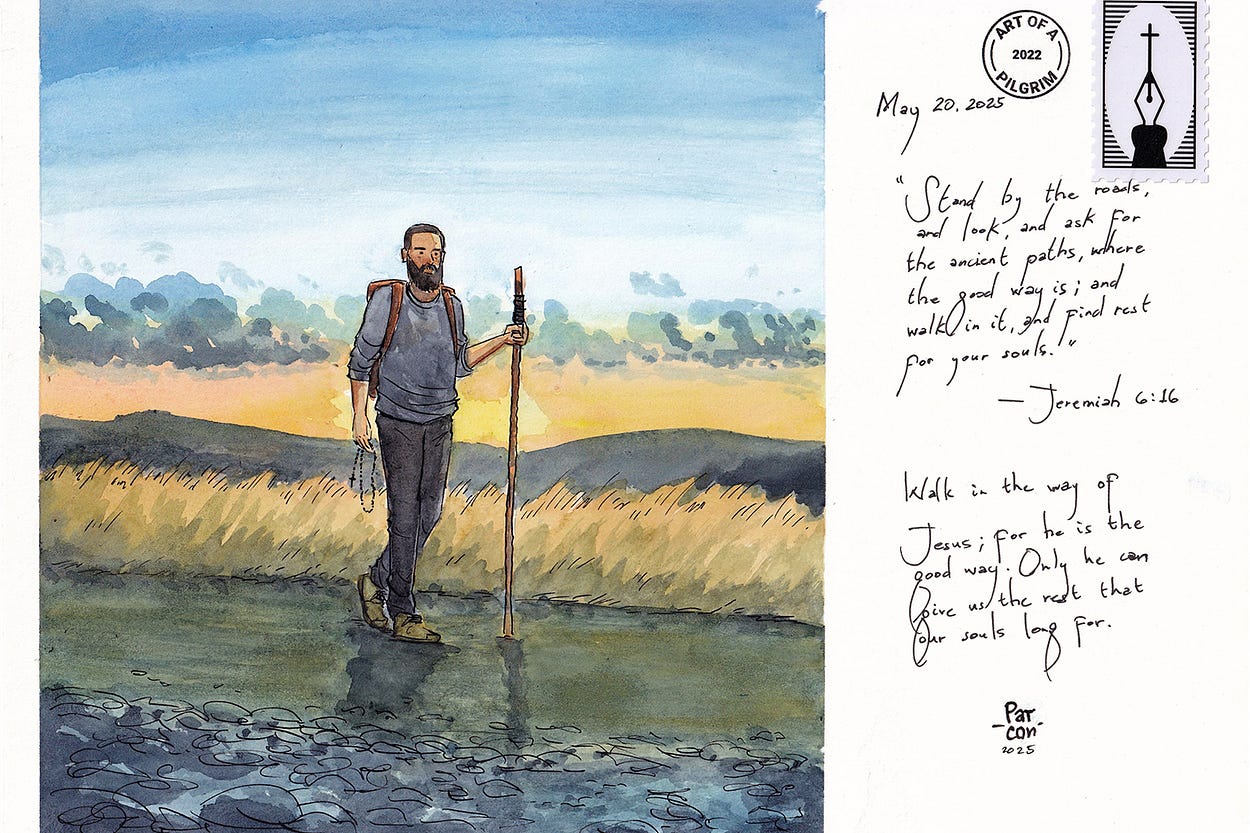 ART OF A
2022
PILGRIM
May 20, 2025
"Stand by the roads,
and look, and ask for
the ancient paths, where
the good way is; and
walk in it, and find rest
for your souls."
— Jeremiah 6:16
Walk in the way of
Jesus; for he is the
good way. Only he can
give us the rest that
our souls long for.
Par
-con-
2025